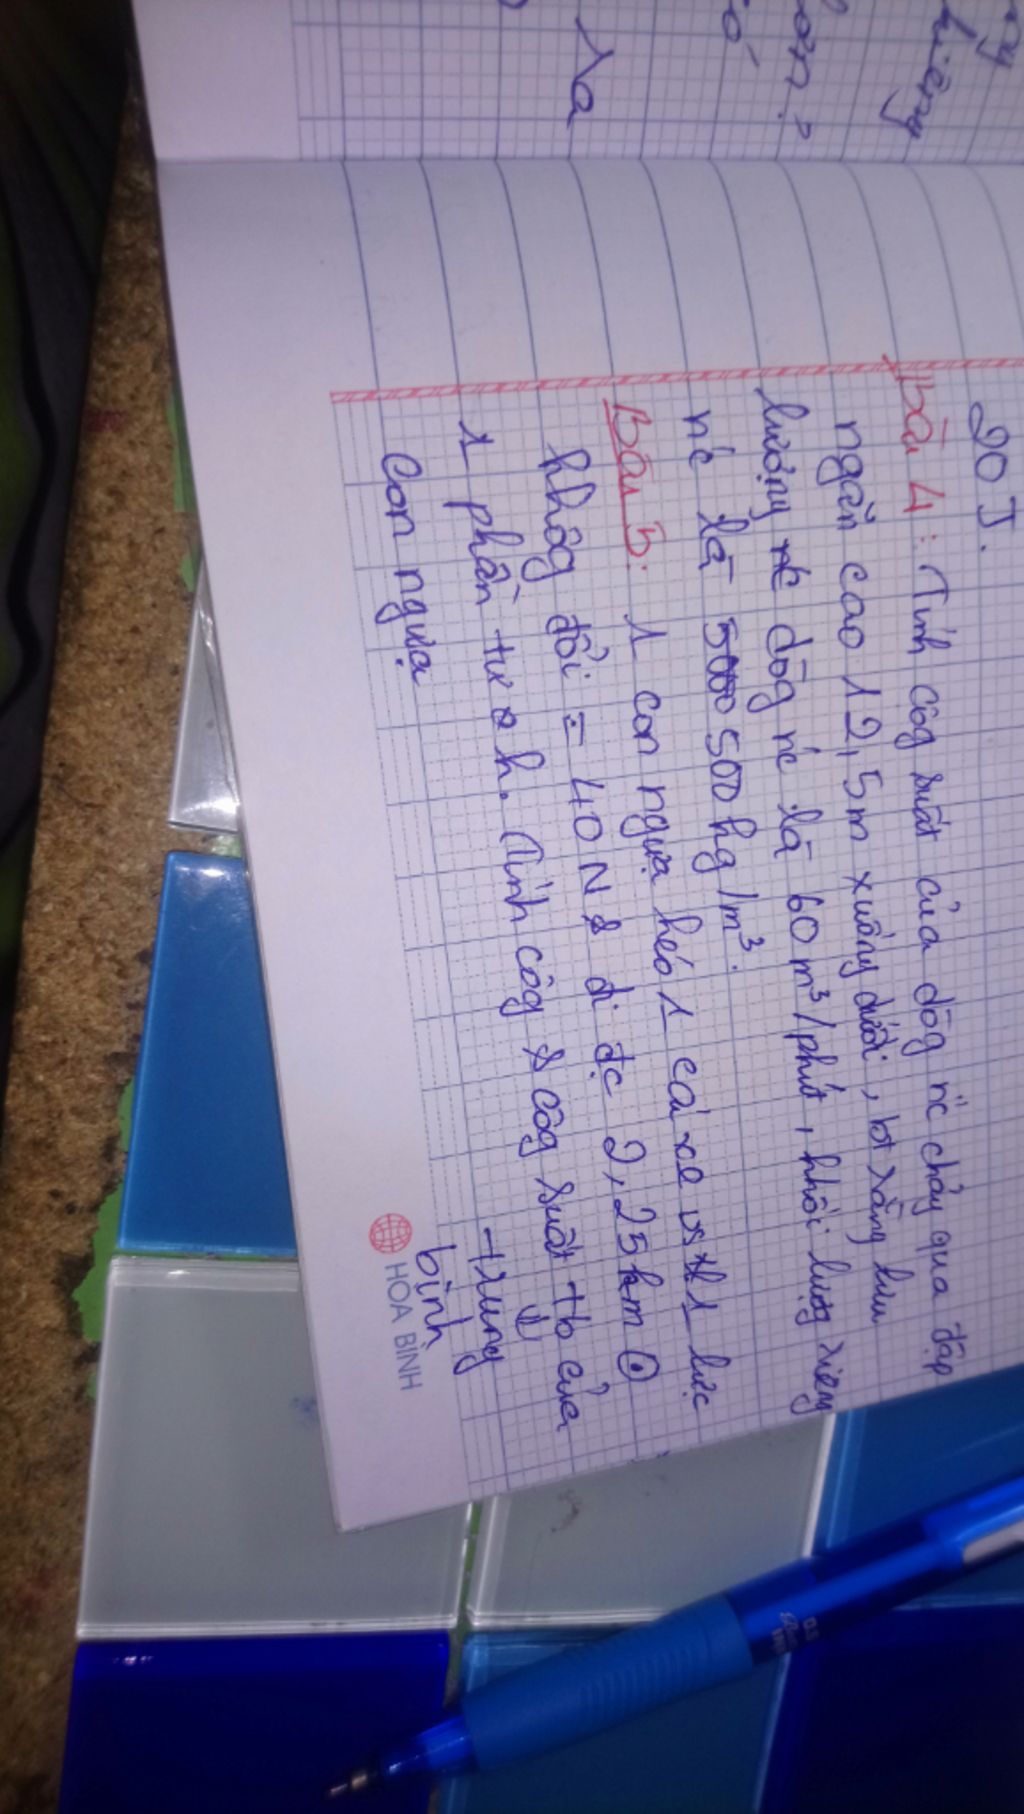 òn ?
có
Va
20 J.
Bài 4 : Tính côg suất của dòg nc chảy qua đập
ngăn cao 12,5m xuống dưới, bt rằng lưu
lượng nc dòg nc là 60 m³/phút, khối lượg riêng
nc là 500 kg/m³.
Bài 5: 1 con ngựa kéo 1 cái xe vs 1 lực
khôg đổi = 40 N & đi đc 2,25km
1 phần tư h. Tính côg & côg suất tb của
con ngựa
trung
bình
HÒA BÌNH